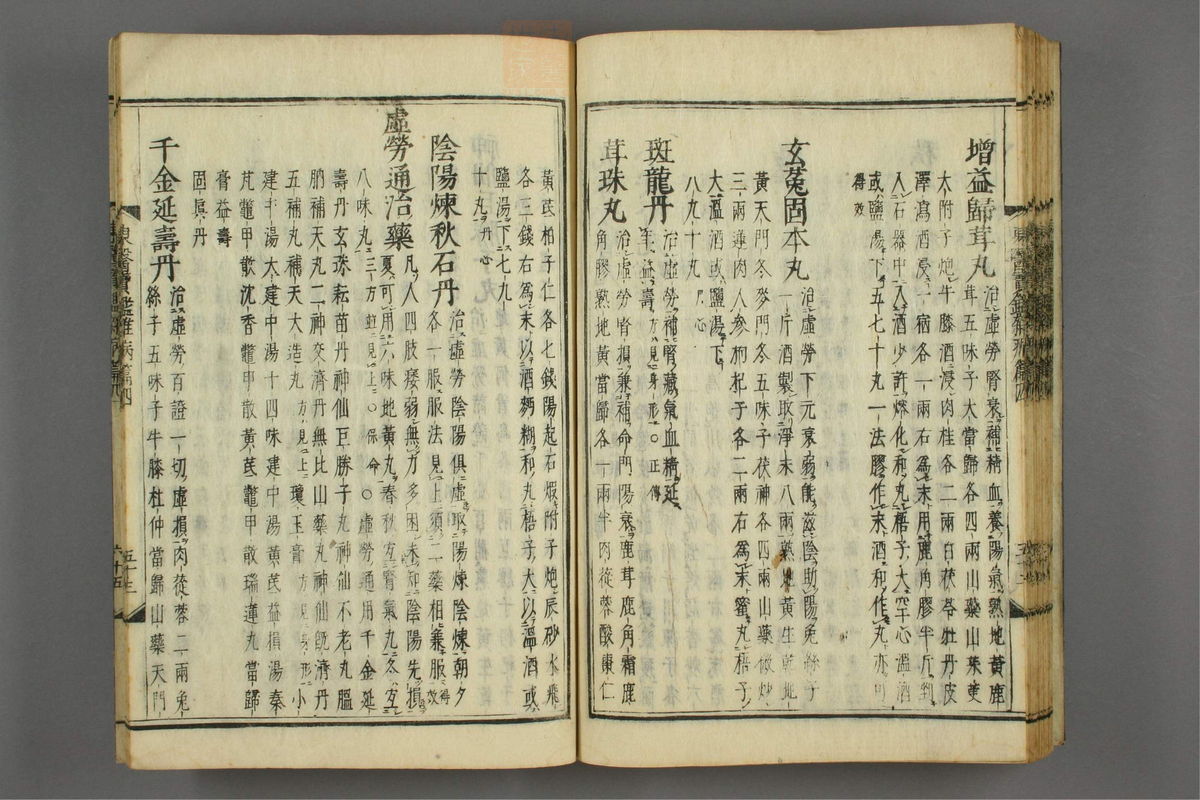 增益歸茸丸 治虛勞腎衰補精血養陽氣熟地黃鹿
茸五味子大當歸各四兩山藥山茱萸
大附子炮牛膝酒浸肉桂各二兩白茯苓牡丹皮
澤瀉酒浸一宿各一兩右爲末用鹿角膠半斤剉
入石器中入酒少許熔化和丸梧子大空心溫酒
或鹽湯下五七十丸一法膠作末酒和作丸亦可
得效
玄菟固本丸 治虛勞下元衰弱能滋陰助陽兎絲子
一斤酒製取淨末八兩熟地黃生乾地
黃天門冬麥門冬五味子茯神各四兩山藥微炒
三兩蓮肉人參枸杞子各二兩右爲末蜜丸梧子
大溫酒或鹽湯下
八九十丸 丹心
斑龍丹 治虛勞補腎藏氣血精延
年益壽 方見身形○正傳
茸珠丸 治虛勞腎損兼補命門陽衰鹿茸鹿角霜鹿
角膠熟地黃當歸各一兩半肉蓯蓉酸棗仁
黃芪柏子仁各七錢陽起石煅附子炮辰砂水飛
各三錢右爲末以酒麪糊和丸梧子大以溫酒或
鹽湯下七九
十丸 丹心
陰陽煉秋石丹 治虛勞陰陽俱虛取陽煉陰煉朝夕
各一服服法見上須二藥相兼服 得效
虛勞通治藥 凡人四肢痿弱無力多困未知陰陽先損
夏可用六味地黃丸春秋宜腎氣丸冬宜
八味丸 三方並見上○保命○虛勞通用千金延
壽丹玄珠耘苗丹神仙巨勝子丸神仙不老丸膃
肭補天丸二神交濟丹無比山藥丸神仙旣濟丹
五補丸補天大造丸 方見上 瓊玉膏 方見身形 小
建中湯大建中湯十四味建中湯黃芪益損湯秦
芃鼈甲散沈香鼈甲散黃芪鼈甲散瑞蓮丸當歸
膏益壽
固眞丹
千金延壽丹 治虛勞百證一切虛損肉蓯蓉二兩兎
絲子五味子牛膝杜仲當歸山藥天門
東醫寶鑑雜病篇四
五十三